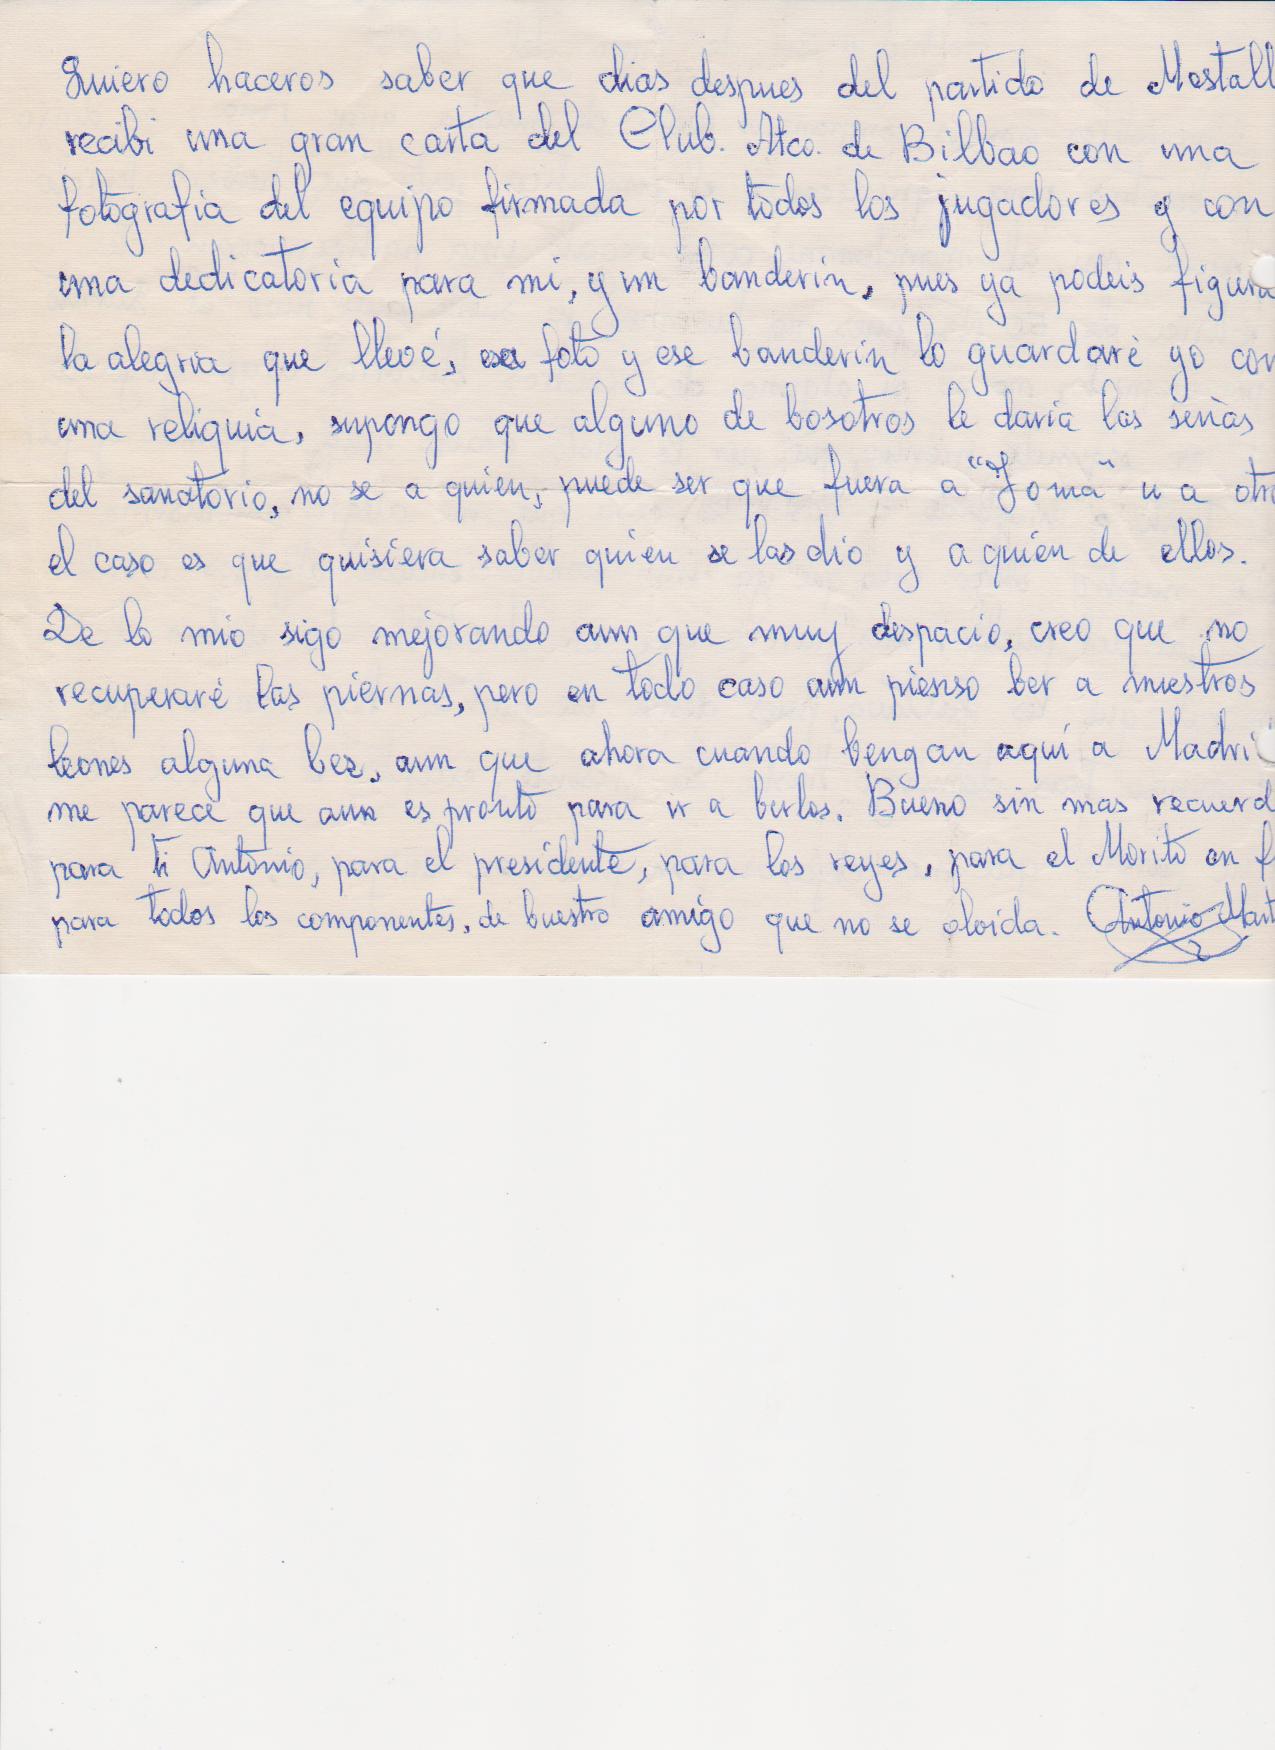 Quiero haceros saber que dias despues del partido de Mestall
recibi una gran carta del Club. Atco. de Bilbao con una
fotografia del equipo firmada por todos los jugadores y con
una dedicatoria para mi, y un banderin, pues ya podeis figura
la alegria que llevé, esa foto y ese banderin lo guardaré yo com
una reliquia, supongo que alguno de bosotros le daria las señas
del sanatorio, no se a quien, puede ser que fuera a "Joma" u a otr
el caso es que quisiera saber quien se las dio y a quien de ellos.
De lo mio sigo mejorando aun que muy despacio, creo que no
recuperaré las piernas, pero en todo caso aun pienso ber a nuestros
leones alguna bez, aun que ahora cuando bengan aquí a Madri
me parece que aun es pronto para ir a berlos. Bueno sin mas recuerd
para ti Antonio, para el presidente, para los reyes, para el Morito en f
para todos los componentes, de buestro amigo que no se olvida. Antonio Mart